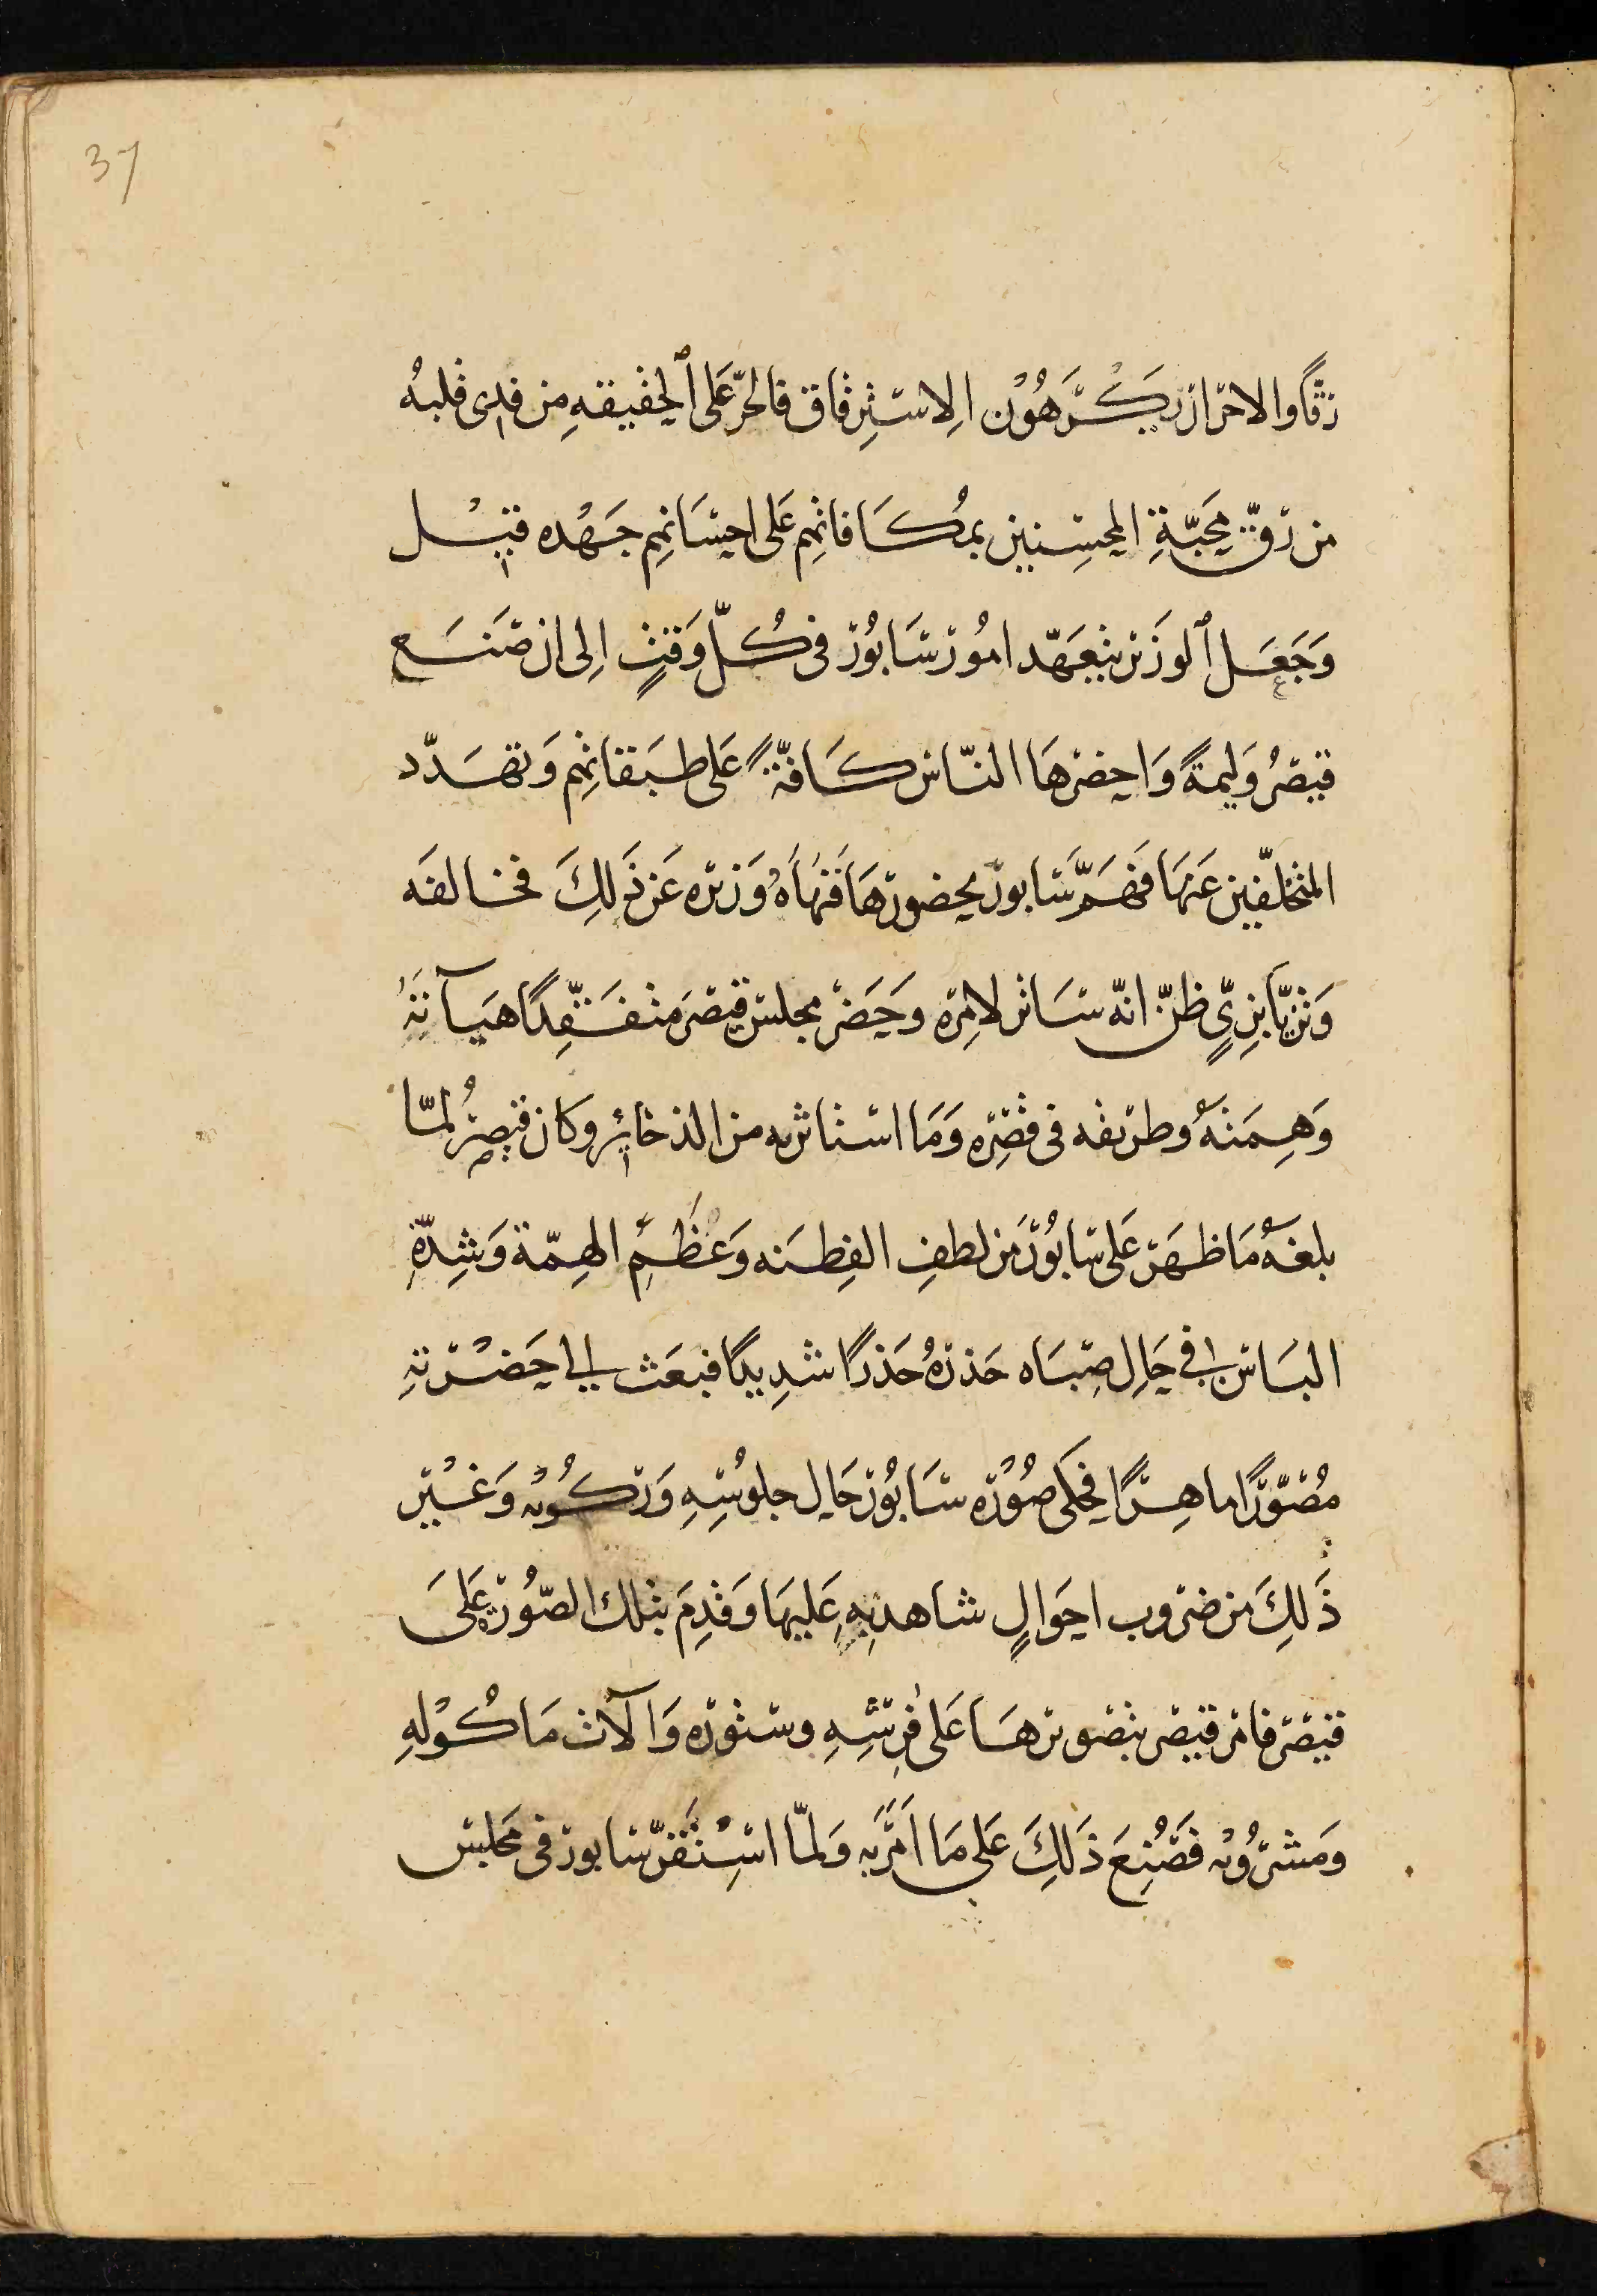 37
رقًّا والاحرار يكرهون الاسترقاق فالحرّ على الحقيقه من فدى قلبه
من رقّ محبّة المحسنين بمكافاتهم على احسانهم جهده قيل
وجعل الوزير يتعهّد امور سابور فى كلّ وقتٍ الى ان صنع
قيصر وليمةً واحضرها الناس كافّةً على طبقاتهم وتهدّد
المتخلّفين عنها فهمّ سابور بحضورها فنهاه وزيره عن ذلك فخالفه
وتزيّا بزىٍّ ظنّ انّه ساتر لامره وحضر مجلس قيصر متفقّدًا هيآته
وهمته وطريقه فى قصره وما استاثر به من الذخائر وكان قيصر لمّا
بلغه ما ظهر على سابور من لطف الفطنه وعظم الهمّة وشدّة
الباس فى حال صباه حذره حذرًا شديدًا فبعث الى حضرته
مصوّرًا ماهرًا فحكى صوره سابور حال جلوسه وركوبه وغير
ذلك من ضروب احوالٍ شاهده عليها وقدم بتلك الصّورة على
قيصر فامر قيصر بتصويرها على فرشه وستوره وآلات ماكوله
ومشروبه فصنع ذلك على ما امر به ولمّا استقرّ سابور فى مجلس